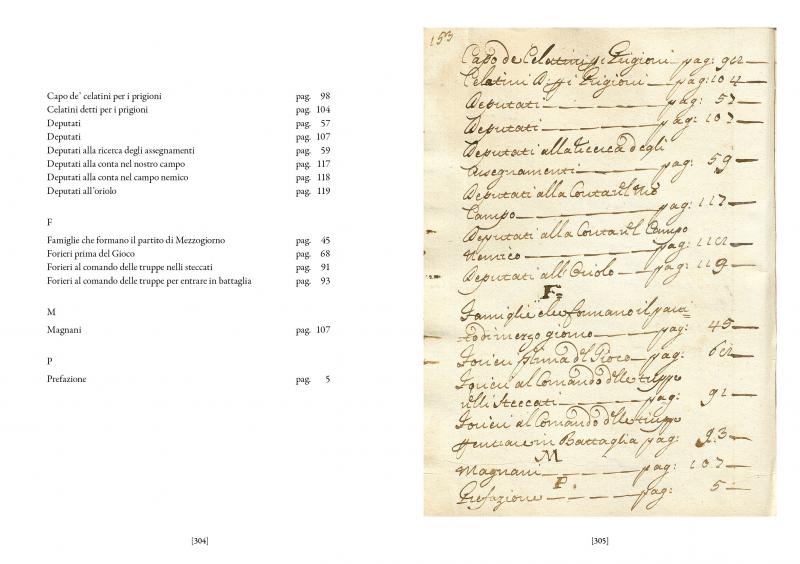 Capo de' celatini per i prigioni pag. 98
Celatini detti per i prigioni pag. 104
Deputati pag. 57
Deputati pag. 107
Deputati alla ricerca degli assegnamenti pag. 59
Deputati alla conta nel nostro campo pag. 117
Deputati alla conta nel campo nemico pag. 118
Deputati all'oriolo pag. 119
F
Famiglie che formano il partito di Mezzogiorno pag. 45
Forieri prima del Gioco pag. 68
Forieri al comando delle truppe nelli steccati pag. 91
Forieri al comando delle truppe per entrare in battaglia pag. 93
M
Magnani pag. 107
P
Prefazione pag. 5
[304]
153
Capo de Celatini p i Prigioni pag: 98
Celatini Detti p i Prigioni pag: 104
Deputati pag: 57
Deputati pag: 107
Deputati alla ricerca degli
Assegnamenti pag: 59
Deputati alla Conta nel Nro
Campo pag: 117
Deputati alla Conta nel Campo
Nemico pag: 118
Deputati all'Oriolo pag: 119
F.
Famiglie che formano il parti=
to di mezzo giorno pag: 45
Forieri Prima del Gioco pag: 68
Forieri al Comando delle truppe
nelli Steccati pag: 91
Forieri al Comando delle truppe
entrare in Battaglia pag: 93
M
Magnani pag: 107
P.
Prefazione pag: 5
[305]